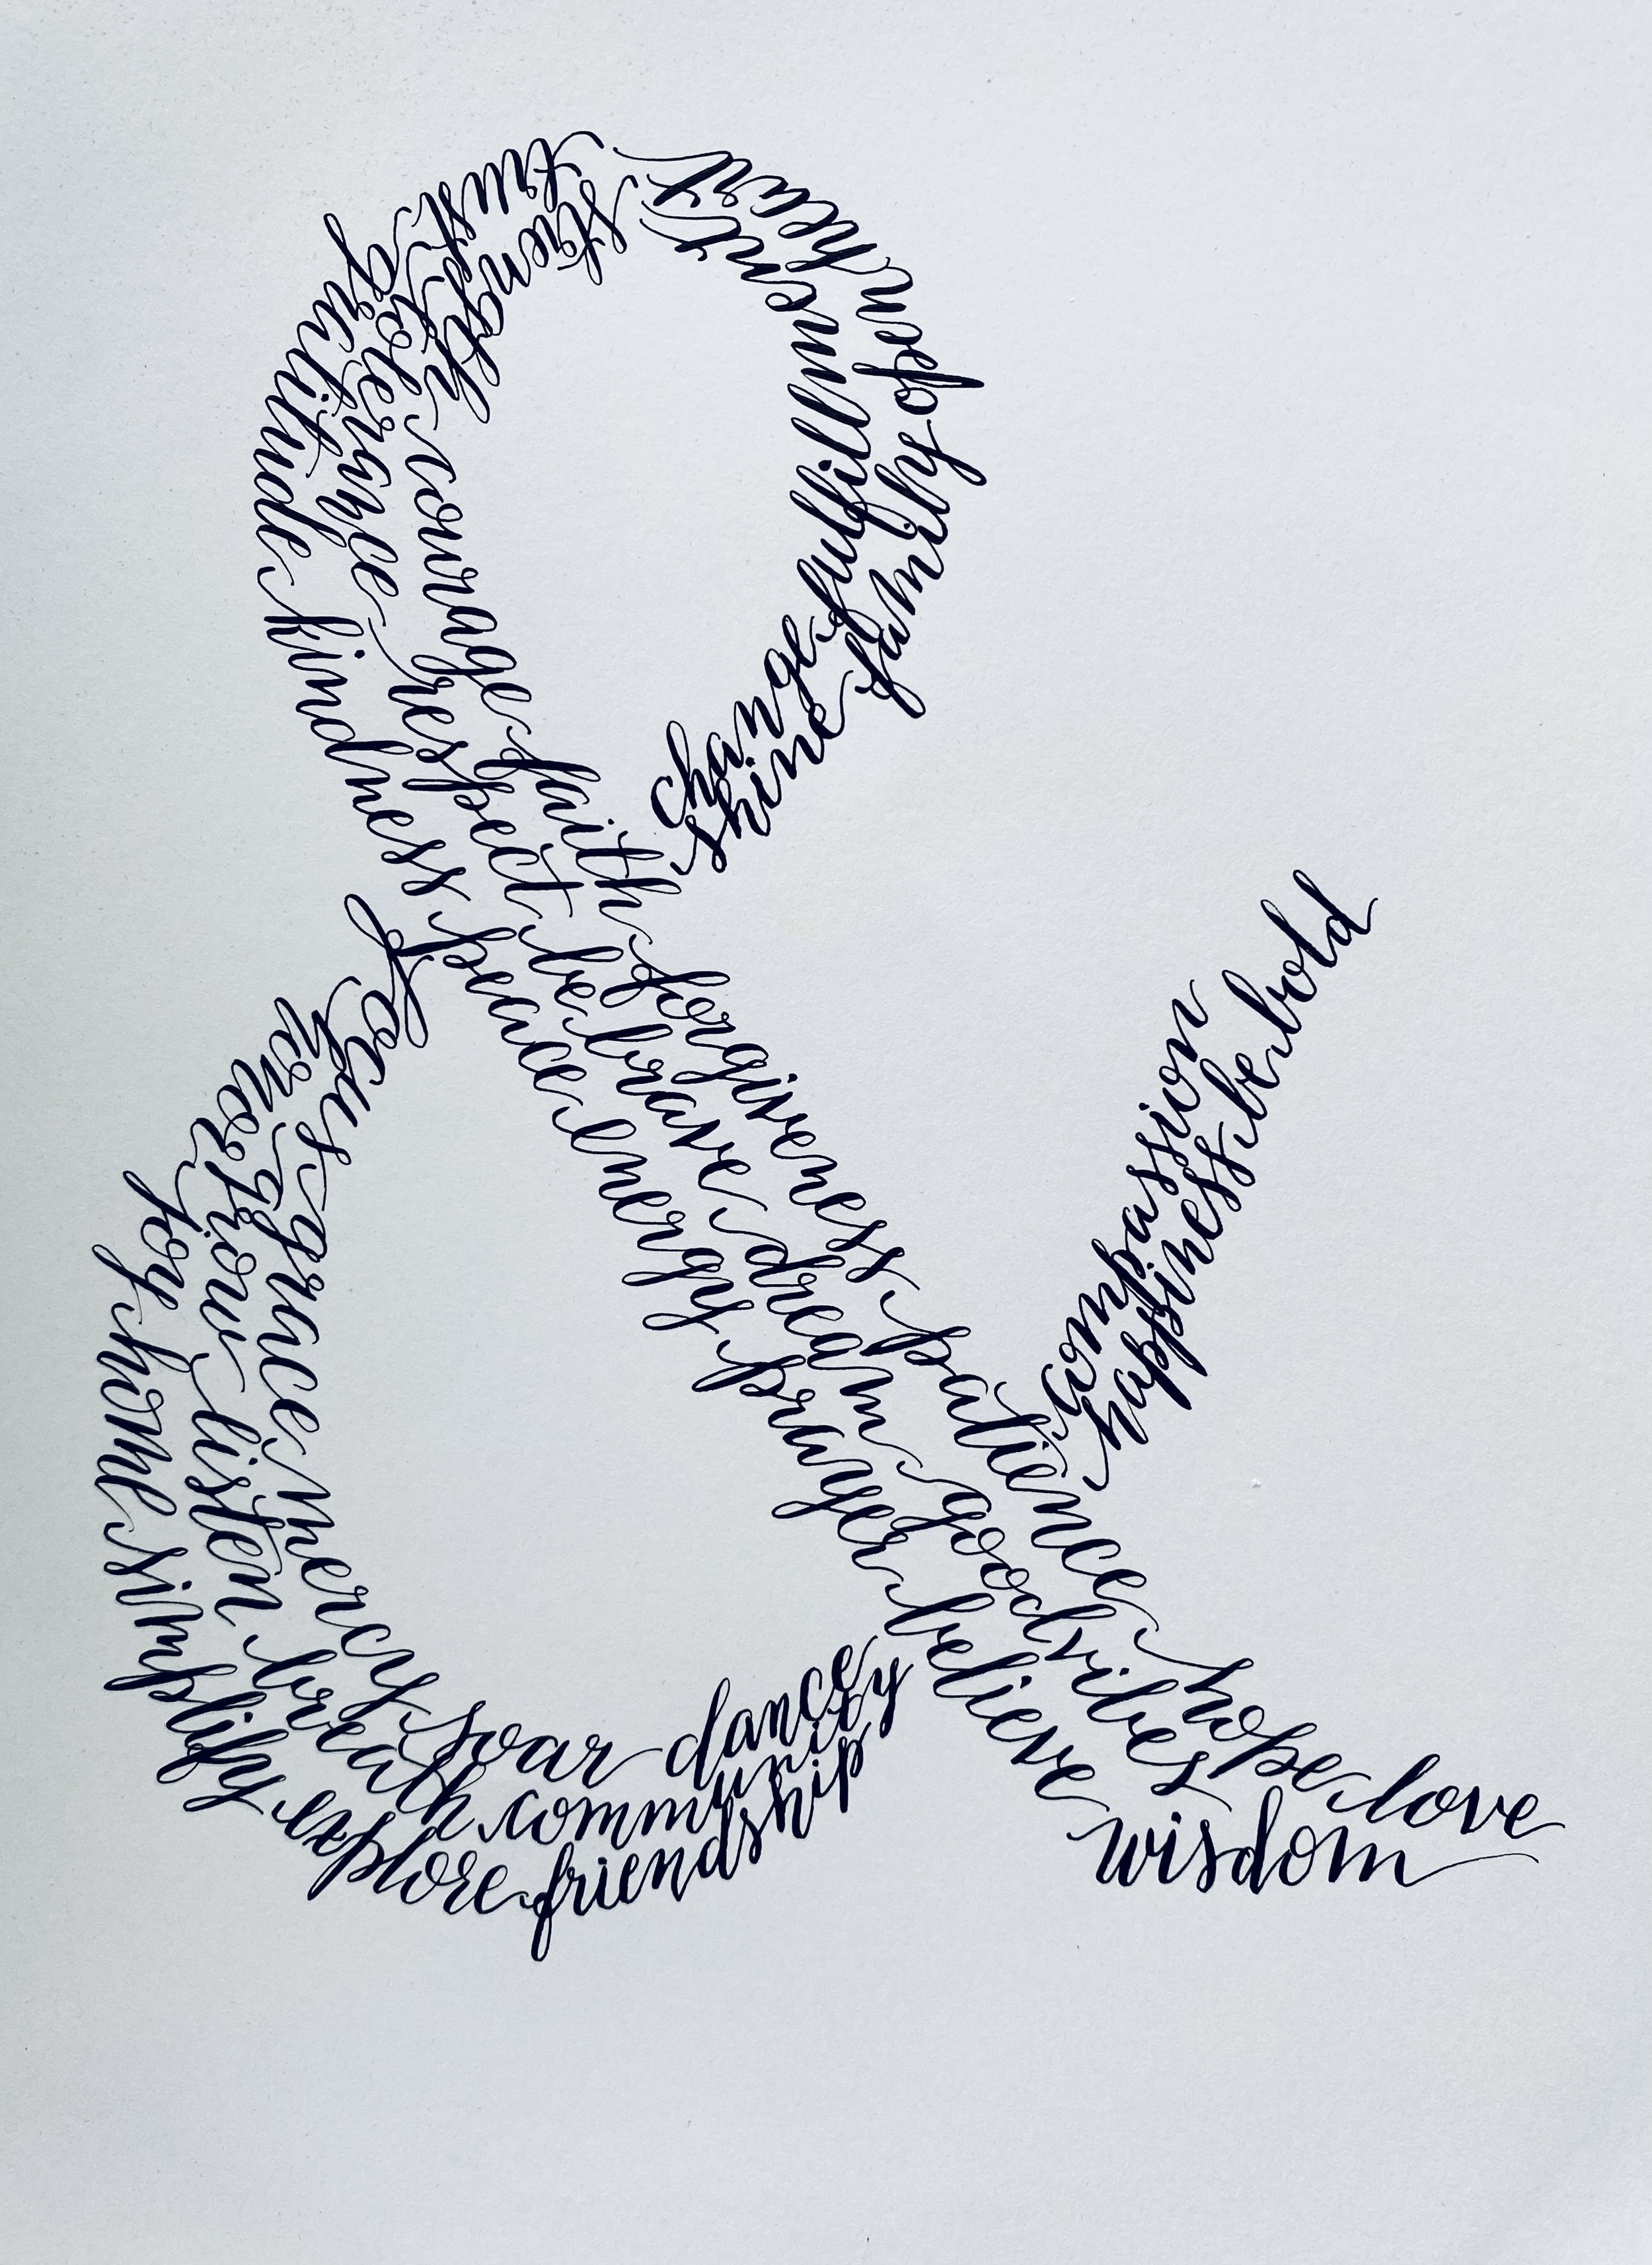 change fulfillment
shine family open heart
strength courage faith forgiveness patience hope love
trust tolerance respect be brave dream good vibes
gratitude kindness peace energy prayer believe wisdom
focus grace mercy soar dance
honor grow listen breath community
joy home simplify explore friendship
compassion
happiness be bold